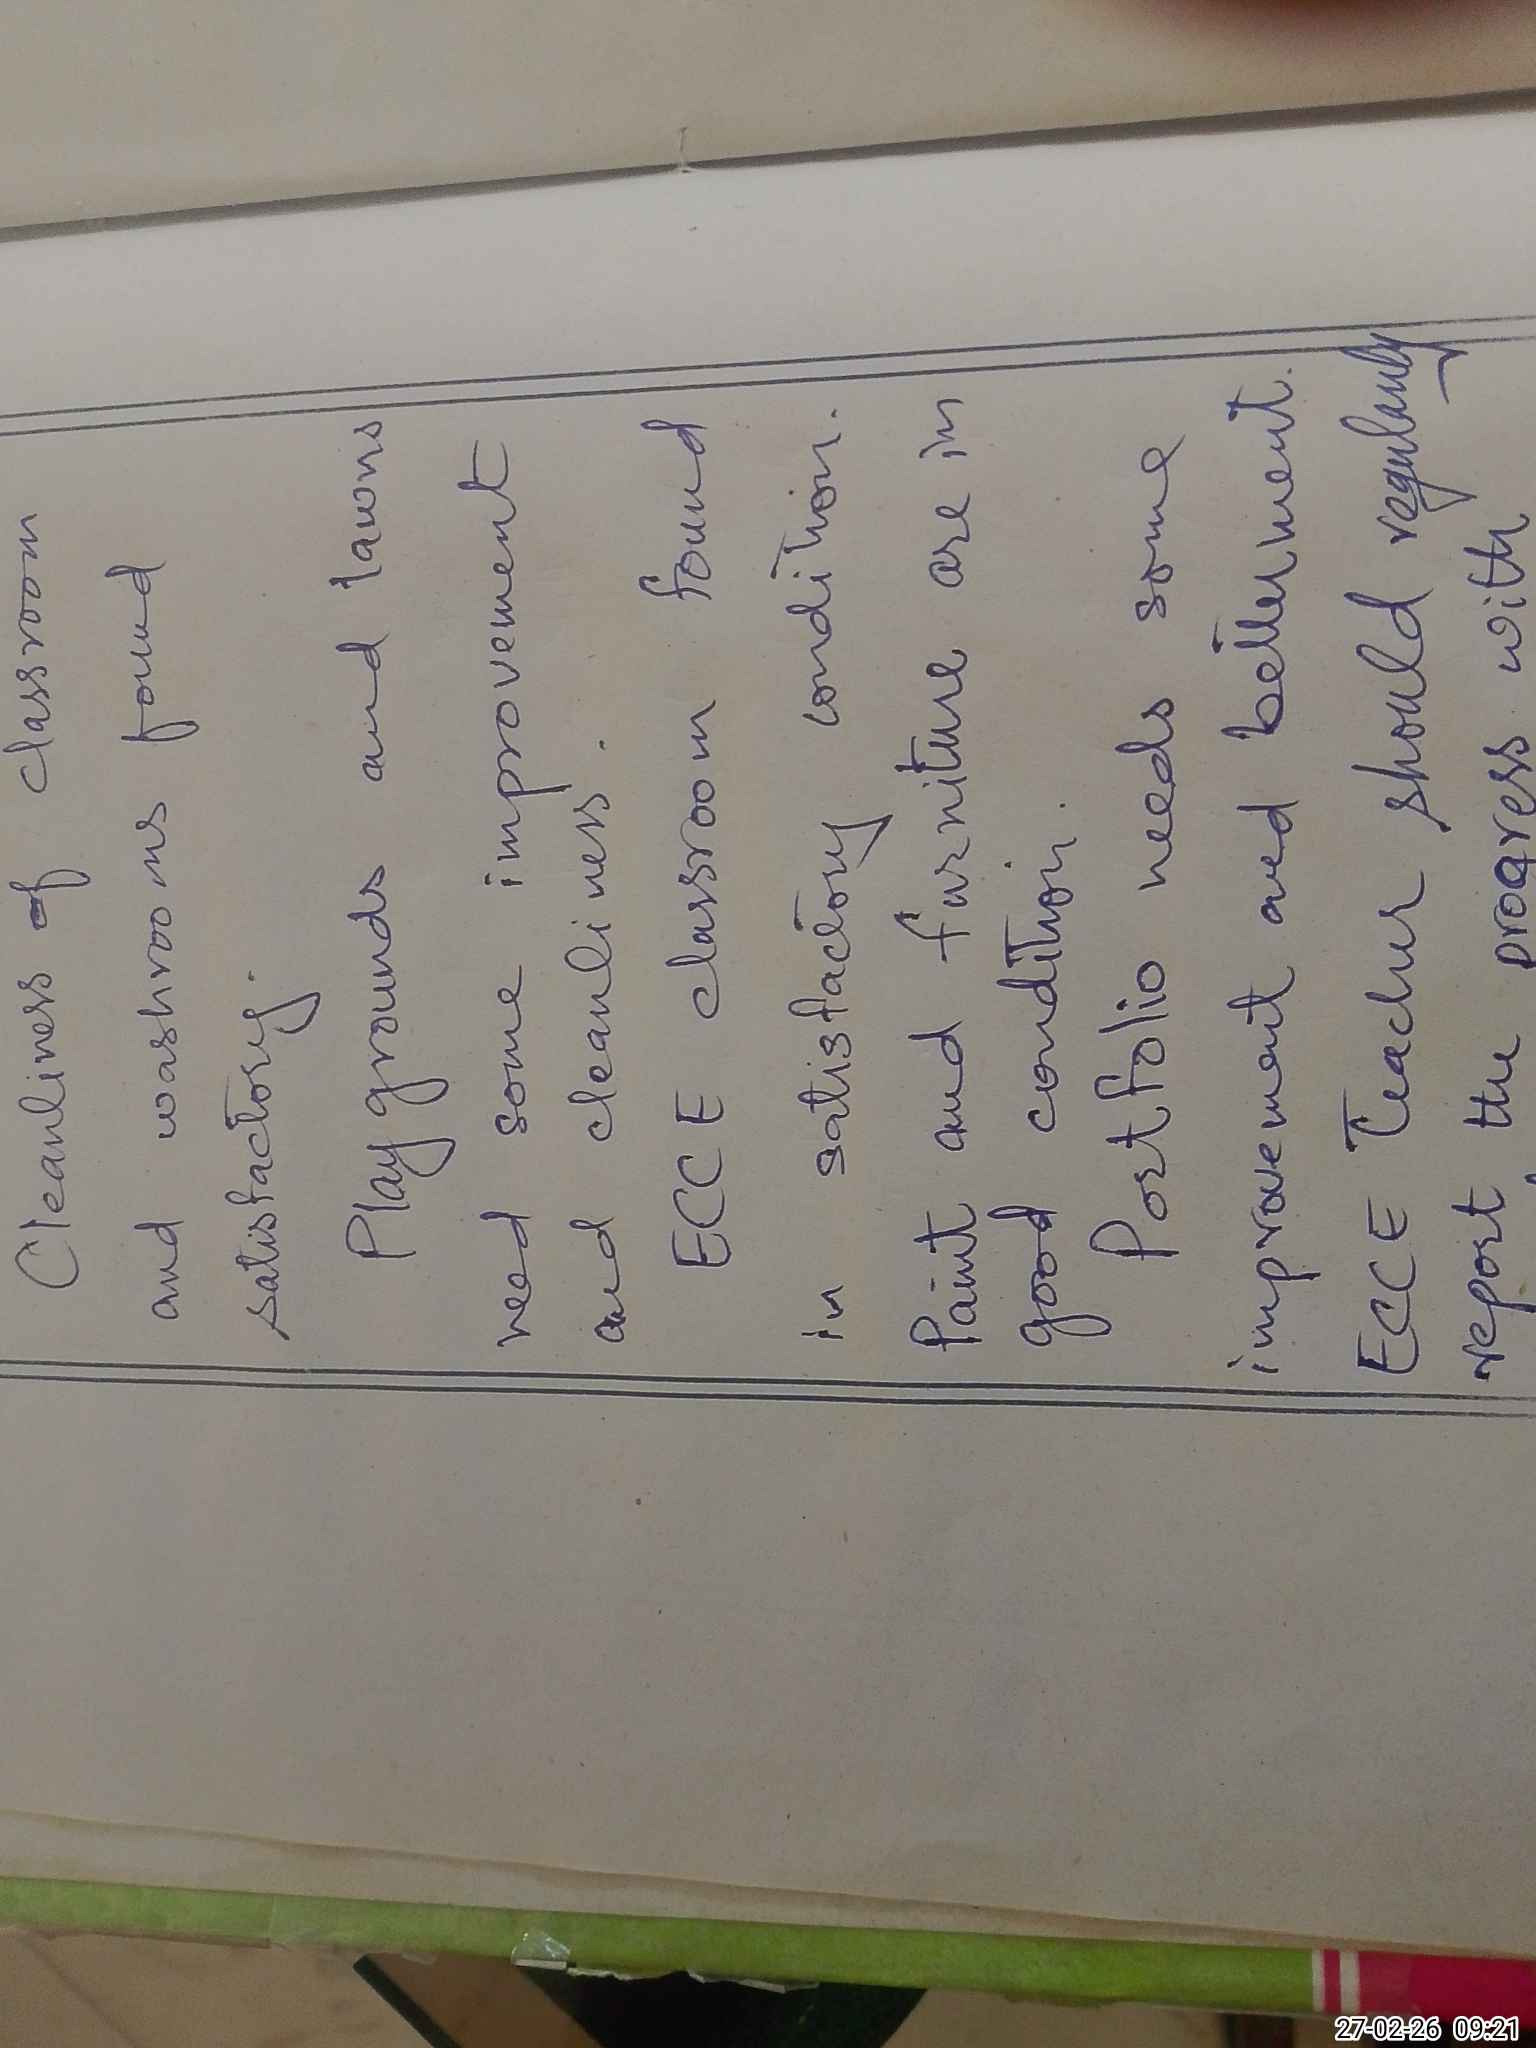 Cleanliness of classroom
and washrooms found
satisfactory.
Play grounds and lawns
need some improvement
and cleanliness.
ECCE classroom found
in satisfactory condition.
Paint and furniture are in
good condition.
Portfolio needs some
improvement and betterment.
ECCE Teacher should regularly
report the progress with
27-02-26 09:21